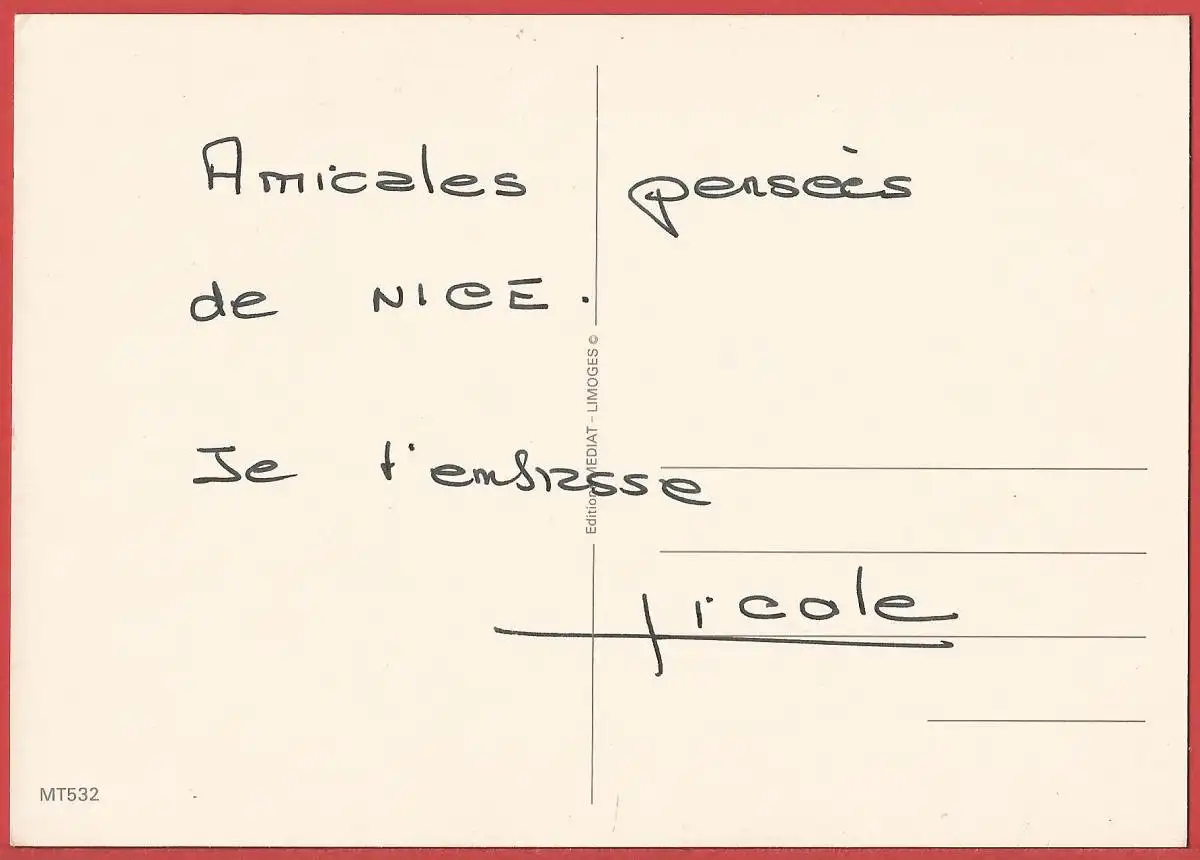 Amicales pensées
de NICE.
Je t'embrasse
Nicole
Editions MEDIAT - LIMOGES ©
MT532